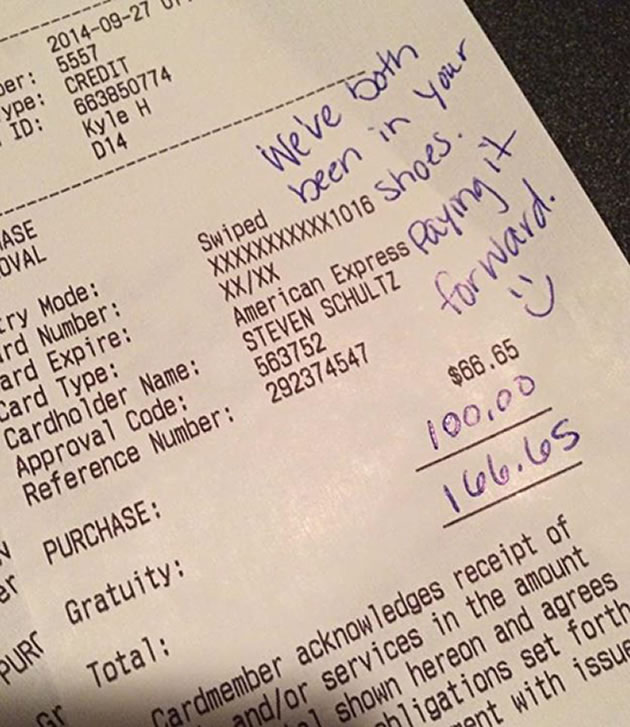 2014-09-27
ber: 5557
ype: CREDIT
ID: 663850774
Kyle H
D14
We've both
been in your
shoes.
Paying it
forward.
ASE
OVAL
try Mode: Swiped
ard Number: XXXXXXXXXXX1016
ard Expire: XX/XX
Card Type: American Express
Cardholder Name: STEVEN SCHULTZ
Approval Code: 563752
Reference Number: 292374547
PURCHASE: $66.65
Gratuity: 100.00
Total: 166.65
PURC
Cardmember acknowledges receipt of
and/or services in the amount
shown hereon and agrees
obligations set forth
ent with issue